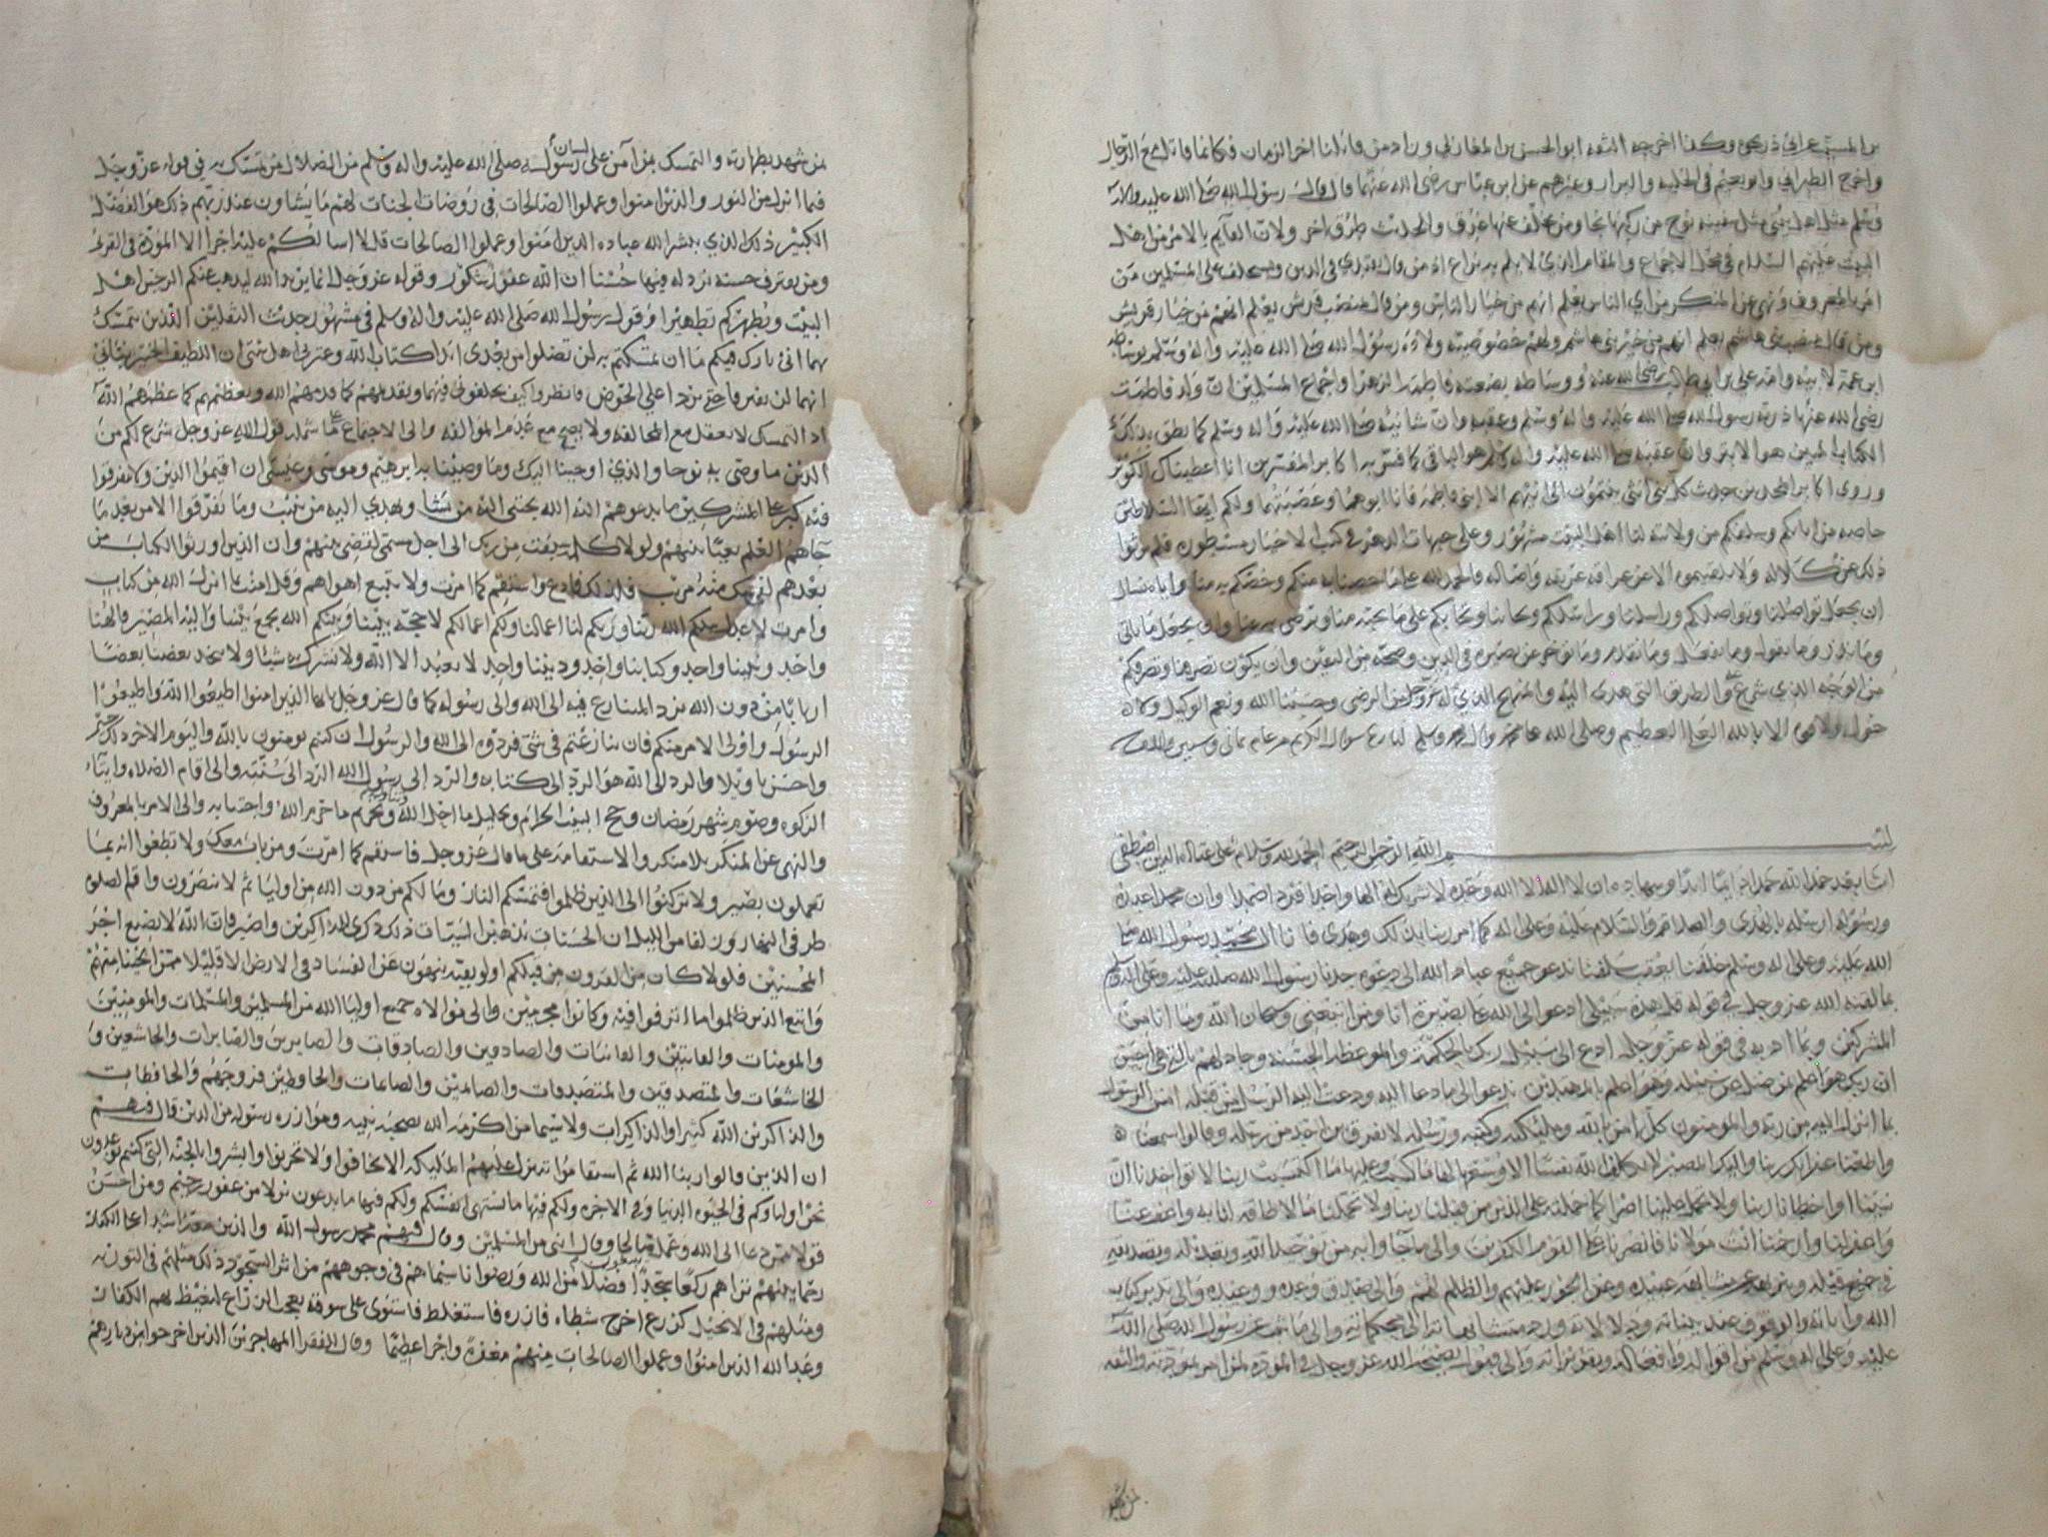 بن المسيب عن ابي ذر نحوه وكذا اخرجه الفقيه ابو الحسن بن المغازلي وزاد من قاتلنا اخر الزمان فكانما قاتل مع الدجال
واخرج الطبراني وابو نعيم في الحلية والبزار وغيرهم عن ابن عباس رضي الله عنهما قال قال رسول الله صلى الله عليه واله
وسلم مثل اهل بيتي مثل سفينة نوح من ركبها نجا ومن تخلف عنها غرق والحديث طرق اخر ولان القايم بالامر من اهل
البيت عليهم السلام في محل الاجماع والمقام الذي لا يلم به نزاع اذ من قال يقتدى في الدين ويستخلف على المسلمين من
امر بالمعروف ونهى عن المنكر من اي الناس يعلم انهم من خيار الناس ومن قال بمنصب قريش يعلم انهم من خيار قريش
ومن قال بمنصب بني هاشم يعلم انهم من خير بني هاشم ولهم خصوصية ولادة رسول الله صلى الله عليه واله وسلم بوساطة
ابن عمه لابيه وامه علي بن ابي طالب رضي الله عنه ووساطة بضعته فاطمة الزهرا واجماع المسلمين ان ولد فاطمة
رضي الله عنها ذرية رسول الله صلى الله عليه واله وسلم وعقبه وان شانيه صلى الله عليه واله وسلم كما نطق بذلك
الكتاب المبين هو الابتر وان عقبه صلى الله عليه واله وسلم هو الباقي كما فسر به اكابر المفسرين انا اعطيناك الكوثر
وروى اكابر المحدثين حديث كل بني انثى ينتمون الى ابيهم الا ابني فاطمة فانا ابوهما وعصبتهما ولكم ايها السلاطين
خاصة من ابائكم وسلفكم من ولائه لنا اهل البيت مشهور وعلى جبهات الدهر في كتب الاخبار مسطورة فلم يرثوا
ذلك عن كلالة ولا يقتسموه الا عن عراقة عريقة واصالة والحمد لله على ما خصنا به منكم وخصكم به منا واياه نسال
ان يجعل تواصلنا وتواصلكم وراسلنا ومراسلكم وكاتبنا وكتابكم على ما يحبه منا ويرضى به عنا وان يجعل ما ياتي
وما نذر وما يقول وما نفعل وما نقدم وما نوخر عن بصيرة في الدين وصحة من اليقين وان يكون تصرفنا وتصرفكم
من الوجه الذي شرع والطريق التي هدى اليه والمنهج الذي له عز وجل فيه الرضى وحسبنا الله ونعم الوكيل ولا
حول ولا قوة الا بالله العلي العظيم وصلى الله على محمد واله وسلم
بسم الله الرحمن الرحيم الحمد لله وسلام على عباده الذين اصطفى
اما بعد حمدا لله حمدا دايبا ابدا وشهادة ان لا اله الا الله وحده لا شريك له الها واحدا فردا صمدا وان محمدا عبده
ورسوله ارسله بالهدى والصلاة والسلام عليه وعلى اله كما امر ربنا بذلك وهدى فانا ال محمد رسول الله صلى
الله عليه وعلى اله وسلم خلفنا يعقب سلفنا ندعو جميع عباد الله الى دعوة جدنا رسول الله صلى الله عليه وعلى اله وسلم
بما لقنه الله عز وجل في قوله قل هذه سبيلي ادعو الى الله على بصيرة انا ومن اتبعني وسبحان الله وما انا من
المشركين وبما ادبه في قوله عز وجل ادع الى سبيل ربك بالحكمة والموعظة الحسنة وجادلهم بالتي هي احسن
ان ربك هو اعلم بمن ضل عن سبيله وهو اعلم بالمهتدين ندعو الى ما دعا اليه ودعت اليه الرسل من قبله امن الرسول
بما انزل اليه من ربه والمومنون كل امن بالله وملئكته وكتبه ورسله لا نفرق بين احد من رسله وقالوا سمعنا
واطعنا غفرانك ربنا واليك المصير لا يكلف الله نفسا الا وسعها لها ما كسبت وعليها ما اكتسبت ربنا لا تواخذنا ان
نسينا او اخطانا ربنا ولا تحمل علينا اصرا كما حملته على الذين من قبلنا ربنا ولا تحملنا ما لا طاقة لنا به واعف عنا
واغفر لنا وارحمنا انت مولانا فانصرنا على القوم الكفرين والى ما جاوا به من توحيد الله وتعديله وتصديقه
في جميع قيله وتنزيهه عن مشابهة عبيده وعن الجور عليهم والظلم لهم والى صدق وعده ووعيده والى تدبر كتابه
الله واياته والوقوف عند بيناته ودلالاته ورد متشابهاته الى محكماته والى ما شرعه رسول الله صلى الله
عليه وعلى اله وسلم من اقواله وافعاله وتقريراته والى قبول نصيحة الله عز وجل في المودة لمن امر بمودته والثقة
من شهد
من شهد بطهارته والتمسك بمن امن على لسان رسوله صلى الله عليه واله وسلم من الضلال من تمسك به في قوله عز وجل
فيما انزل من النور والذين امنوا وعملوا الصالحات في روضات الجنات لهم ما يشاون عند ربهم ذلك هو الفضل
الكبير ذلك الذي يبشر الله عباده الذين امنوا وعملوا الصالحات قل لا اسالكم عليه اجرا الا المودة في القربى
ومن يقترف حسنة نزد له فيها حسنا ان الله غفور شكور وقوله عز وجل انما يريد الله ليذهب عنكم الرجس اهل
البيت ويطهركم تطهيرا وقول رسول الله صلى الله عليه واله وسلم في مشهور حديث الثقلين الذين تمسك
بهما اني تارك فيكم ما ان تمسكتم به لن تضلوا من بعدي ابدا كتاب الله وعترتي اهل بيتي ان اللطيف الخبير نباني
انهما لن يفترقا حتى يردا علي الحوض فانظروا كيف تخلفوني فيهما وتقدمهم كما قدمهم الله وتعظمهم كما عظمهم الله
اذ التمسك لا يعقل مع المخالفة ولا يصح مع عدم الموالفة والى الاجتماع على ما شمله قول الله عز وجل شرع لكم من
الدين ما وصى به نوحا والذي اوحينا اليك وما وصينا به ابرهيم وموسى وعيسى ان اقيموا الدين ولا تتفرقوا
فيه كبر على المشركين ما تدعوهم اليه الله يجتبي اليه من يشا ويهدي اليه من ينيب وما تفرقوا الا من بعد ما
جاهم العلم بغيا بينهم ولولا كلمة سبقت من ربك الى اجل مسمى لقضي بينهم وان الذين اورثوا الكتاب من
بعدهم لفي شك منه مريب فلذلك فادع واستقم كما امرت ولا تتبع اهواهم وقل امنت بما انزل الله من كتاب
وامرت لاعدل بينكم الله ربنا وربكم لنا اعمالنا ولكم اعمالكم لا حجة بيننا وبينكم الله يجمع بيننا واليه المصير والهنا
واحد ونبينا واحد وكتابنا واحد وديننا واحد لا نعبد الا الله ولا نشرك به شيئا ولا يتخذ بعضنا بعضا
اربابا من دون الله نرد المتنازع فيه الى الله والى رسوله كما قال عز وجل يا ايها الذين امنوا اطيعوا الله واطيعوا
الرسول واولى الامر منكم فان تنازعتم في شي فردوه الى الله والرسول ان كنتم تومنون بالله واليوم الاخر ذلك خير
واحسن تاويلا والرد الى الله هو الرد الى كتابه والرد الى رسول الله الرد الى سنته والى اقام الصلاه وايتاء
الزكوه وصوم شهر رمضان وحج البيت الحرام وتحليل ما احل الله وتحريم ما حرم الله واجتنابه والى الامر بالمعروف
والنهي عن المنكر بلا منكر والاستقامة على ما قال عز وجل فاستقم كما امرت ومن تاب معك ولا تطغوا انه بما
تعملون بصير ولا تركنوا الى الذين ظلموا فتمسكم النار وما لكم من دون الله من اوليا ثم لا تنصرون واقم الصلوة
طرفي النهار وزلفا من الليل ان الحسنات يذهبن السيئات ذلك ذكرى للذاكرين واصبر فان الله لا يضيع اجر
المحسنين فلولا كان من القرون من قبلكم اولو بقية ينهون عن الفساد في الارض الا قليلا ممن انجينا منهم
واتبع الذين ظلموا ما اترفوا فيه وكانوا مجرمين والى موالاه جميع اوليا الله من المسلمين والمسلمات والمومنين
والمومنات والقانتين والقانتات والصادقين والصادقات والصابرين والصابرات والخاشعين و
الخاشعات والمتصدقين والمتصدقات والصائمين والصائمات والحافظين فروجهم والحافظات
والذاكرين الله كثيرا والذاكرات ولا سيما من اكرمه الله بصحبة نبيه وموازرة رسوله من الذين قال فيهم
ان الذين قالوا ربنا الله ثم استقاموا تتنزل عليهم الملئيكه الا تخافوا ولا تحزنوا وابشروا بالجنه التي كنتم توعدون
نحن اولياوكم في الحيوه الدنيا وفي الاخره ولكم فيها ما تشتهي انفسكم ولكم فيها ما تدعون نزلا من غفور رحيم ومن احسن
قولا ممن دعا الى الله وعمل صالحا وقال انني من المسلمين وقال فيهم محمد رسول الله والذين معه اشدا على الكفار
رحما بينهم تراهم ركعا سجدا يبتغون فضلا من الله ورضوانا سيماهم في وجوههم من اثر السجود ذلك مثلهم في التورية
ومثلهم في الانجيل كزرع اخرج شطاه فازره فاستغلظ فاستوى على سوقه يعجب الزراع ليغيظ بهم الكفار
وعد الله الذين امنوا وعملوا الصالحات منهم مغفرة واجرا عظيما وقال للفقرا المهاجرين الذين اخرجوا من ديارهم